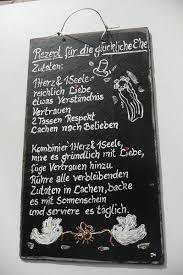 Rezept für die glückliche Ehe
Zutaten:
1 Herz & 1 Seele
reichlich Liebe,
etwas Verständnis
Vertrauen
2 Tassen Respekt
Lachen nach Belieben
Kombinier 1 Herz & 1 Seele,
mixe es gründlich mit Liebe,
füge Vertrauen hinzu.
Rühre alle verbleibenden
Zutaten in Lachen, backe
es mit Sonnenschein
und serviere es täglich.